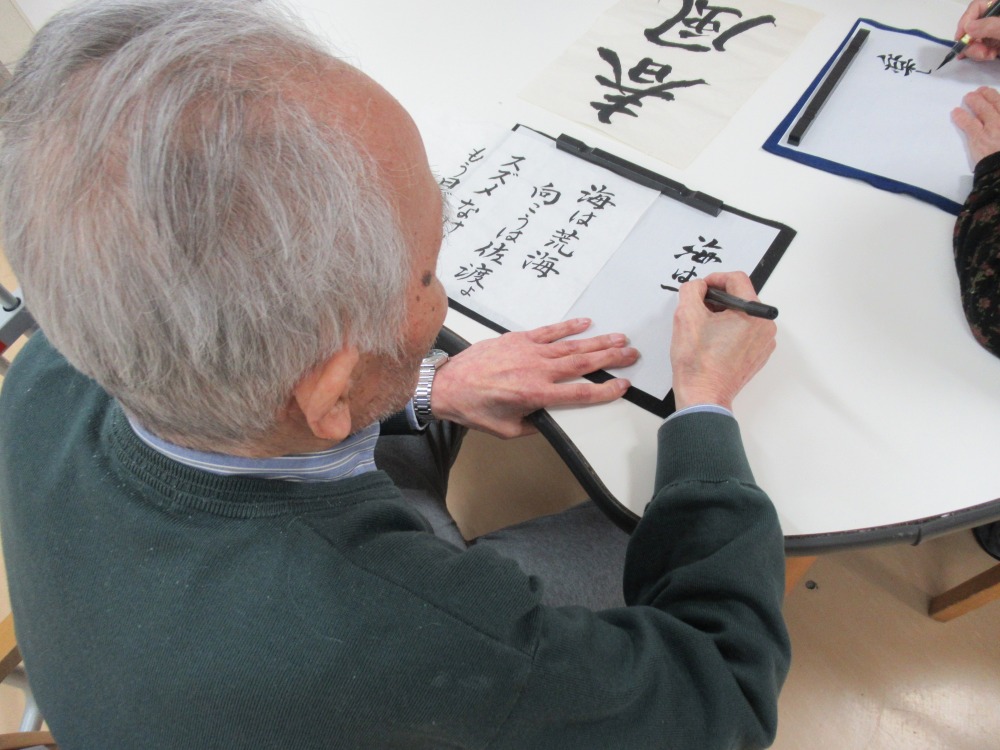 春風
海は荒海
向こうは佐渡よ
スズメなけ
もう日
海は